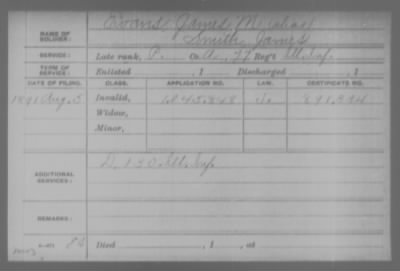 NAME OF SOLDIER: Evans, James M. (alias)
Smith, James
SERVICE: Late rank, P. Co. A, 77 Reg't Ill. Inf.
TERM OF SERVICE: Enlisted , 1 Discharged , 1
DATE OF FILING. CLASS. APPLICATION NO. LAW. CERTIFICATE NO.
1891 Aug. 5 Invalid, 1.045.848 891.394
Widow,
Minor,
ADDITIONAL SERVICES: D, 130 Ill. Inf.
REMARKS:
Died , 1 , at